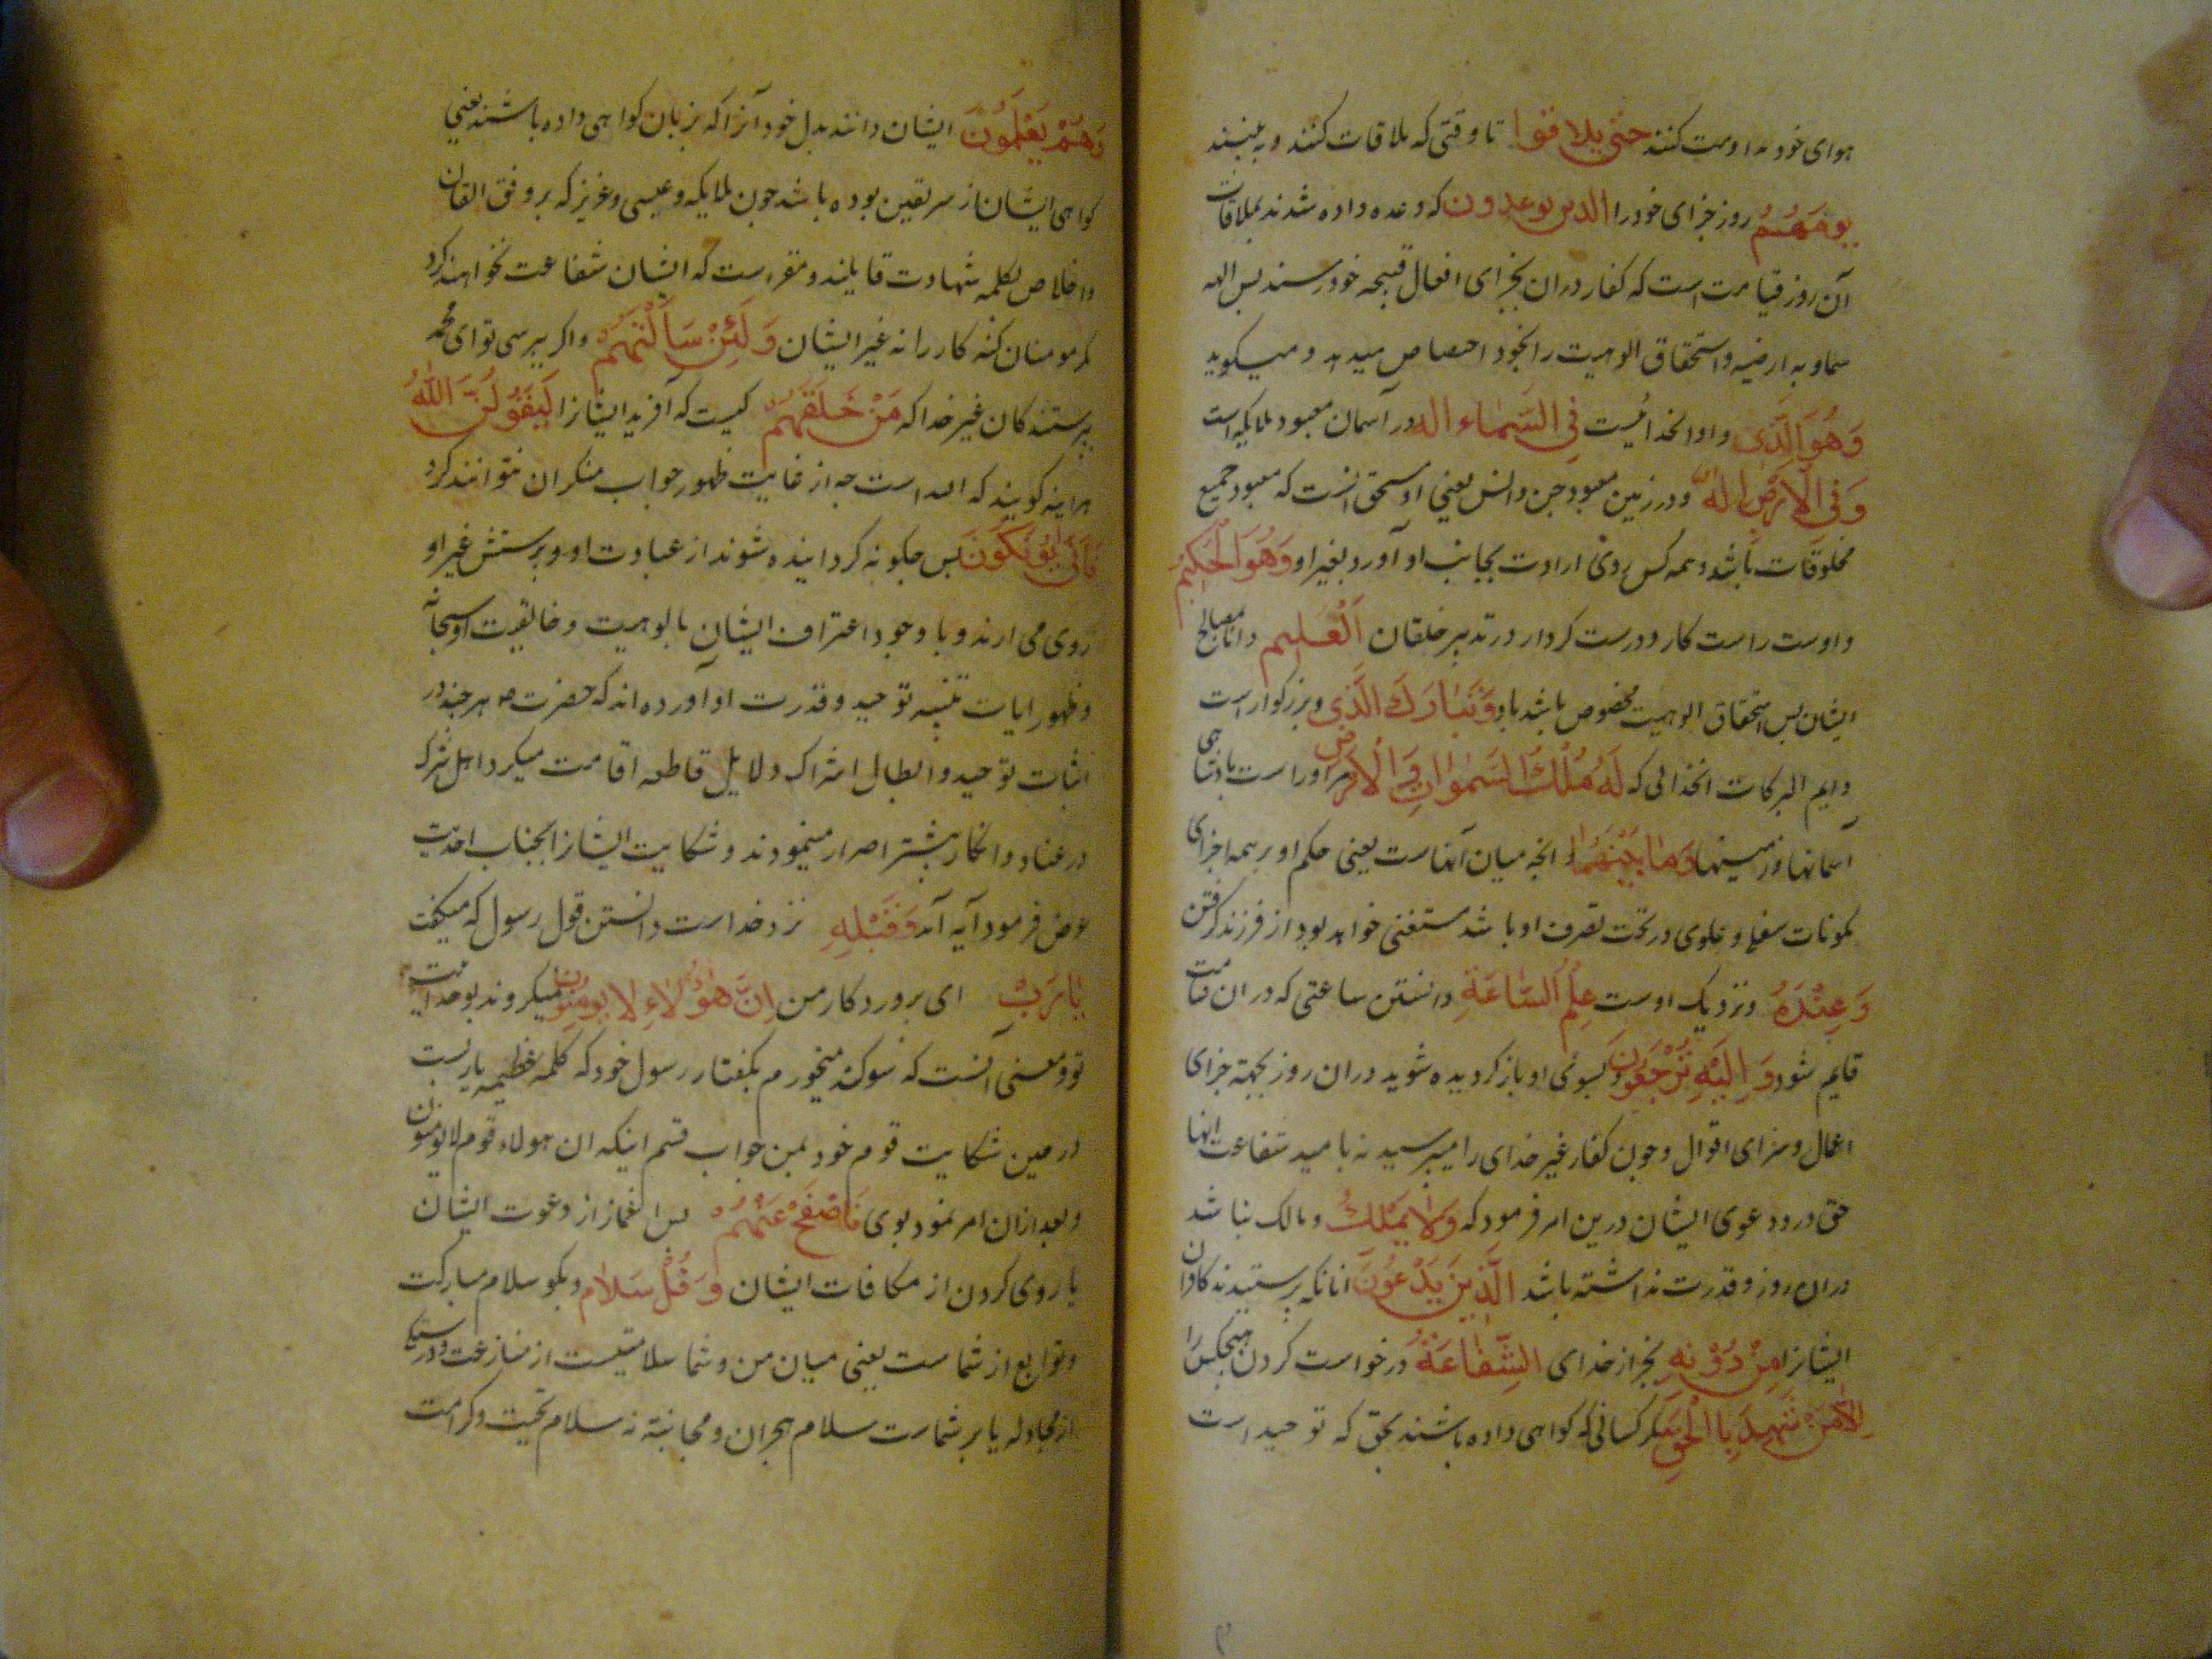 هوای خود مداومت کنند حتی یلاقوا تا وقتی که ملاقات کنند و به بینند
یومهم روز جزای خود را الذی یوعدون که وعده داده شدند بملاقات
آن روز قیامت است که کفار دران بجزای افعال قبیحه خود رسند بس اله
سماویه ارضیه و استحقاق الوهیت را بخود اختصاص میدهد و میکوید
وَهُوَ الَّذی و او انخدائیست فِی السَّمَاء اله در آسمان معبود ملایکه است
وَفِی الْاَرْضِ اِلٰهٌ و در زمین معبود جن و انس یعنی او مستحق انست که معبود جمیع
مخلوقات باشد و همه کس روی ارادت بجانب او آورد بغیر او وَهُوَ الْحَکِیْمُ
و اوست راست کار و درست کردار در تدبیر خلقان اَلْعَلیم دانا بمصالح
ایشان بس استحقاق الوهیت مخصوص باشد باو وَتَبَارَكَ الَّذِی و بزرکوار است
دایم البرکات انخدائی که لَهُ مُلْكُ السَّمٰوَاتِ وَ الْاَرْضِ مر او راست بادشاهی
آسمانها و زمینها وَمَا بَیْنَهُمَا و انچه میان آنهاست یعنی حکم او بر همه اجزای
مکونات سفلی و علوی در تحت تصرف او باشد مستغنی خواهد بود از فرزند کرفتن
وَعِنْدَهُ و نزدیک اوست عِلْمُ السَّاعَةِ دانستن ساعتی که دران قیامت
قایم شود وَ اِلَیْهِ تُرْجَعُوْنَ و بسوی او باز کردیده شوید دران روز بجهة جزای
اعمال و سزای اقوال و چون کفار غیر خدای را میپرسیدند بامید شفاعت انها
حق در رد دعوی ایشان درین امر فرمود که وَلَا یَمْلِكُ و مالک نباشد
دران روز و قدرت نداشته باشد الَّذِیْنَ یَدْعُوْنَ انانکه پرستیدند کافران
ایشانرا مِنْ دُوْنِهِ بجز از خدای الشَّفَاعَةُ درخواست کردن هیچکس را
اِلَّا مَنْ شَهِدَ بِاالْحَقِّ مکر کسانی که کواهی داده باشند بحق که توحید است
وَهُمْ یَعْلَمُوْنَ ایشان دانند بدل خود آنرا که بزبان کواهی داده باشند یعنی
کواهی ایشان از سر یقین بوده باشد چون ملایکه و عیسی و عزیز که بر وفق ایقان
و اخلاص بکلمه شهادت قایلند و مقرراست که ایشان شفاعت نخواهند کرد
مکر مومنان کنه کار را نه غیر ایشان وَلَئِنْ سَاَلْتَهُمْ و اکر بپرسی تو ای محمد
پرستندکان غیر خدا که مَنْ خَلَقَهُمْ کیست که آفرید ایشانرا لَیَقُولُنَّ اللهُ
هراینه کویند که الله است چه از غایت ظهور جواب منکران نتوانند کرد
فَاَنّٰی یُؤْفَکُوْنَ بس چکونه کردانیده شوند از عبادت او و پرستش غیر او
روی می ارند و با وجود اعتراف ایشان بالوهیت و خالقیت او سبحانه
و ظهور ایات توحید و قدرت او آورده اند که حضرت هر چند در
اثبات توحید و ابطال اشراک دلایل قاطعه اقامت میکرد اهل شرک
در عناد و انکار بیشتر اصرار مینمودند و شکایت ایشانرا بجناب احدیت
عرض فرمود آیه آمد وَقِیْلِهِ نزد خداست دانستن قول رسول که میکفت
یَارَبِّ ای پروردکار من اِنَّ هٰؤُلَاءِ لَا یُومِنُوْنَ نمیکروند بوحدانیت
تو و معنی آنست که سوکند میخورم بکفتار رسول خود که کلمه عظیمه یارب است
در عین شکایت قوم خود بمن جواب قسم اینکه ان هولاء قوم لا یومنون
و بعد ازان امر نمود بوی فَاصْفَحْ عَنْهُمْ بس از دعوت ایشان
یا روی کردن از مکافات ایشان وَ قُلْ سَلَام و بکو سلام مبارکت
و توابع از شماست یعنی میان من و شما سلامتیست از منازعت و
از مجادله یا بر شماست سلام هجران و مجانبة نه سلام تحیت و کرامت